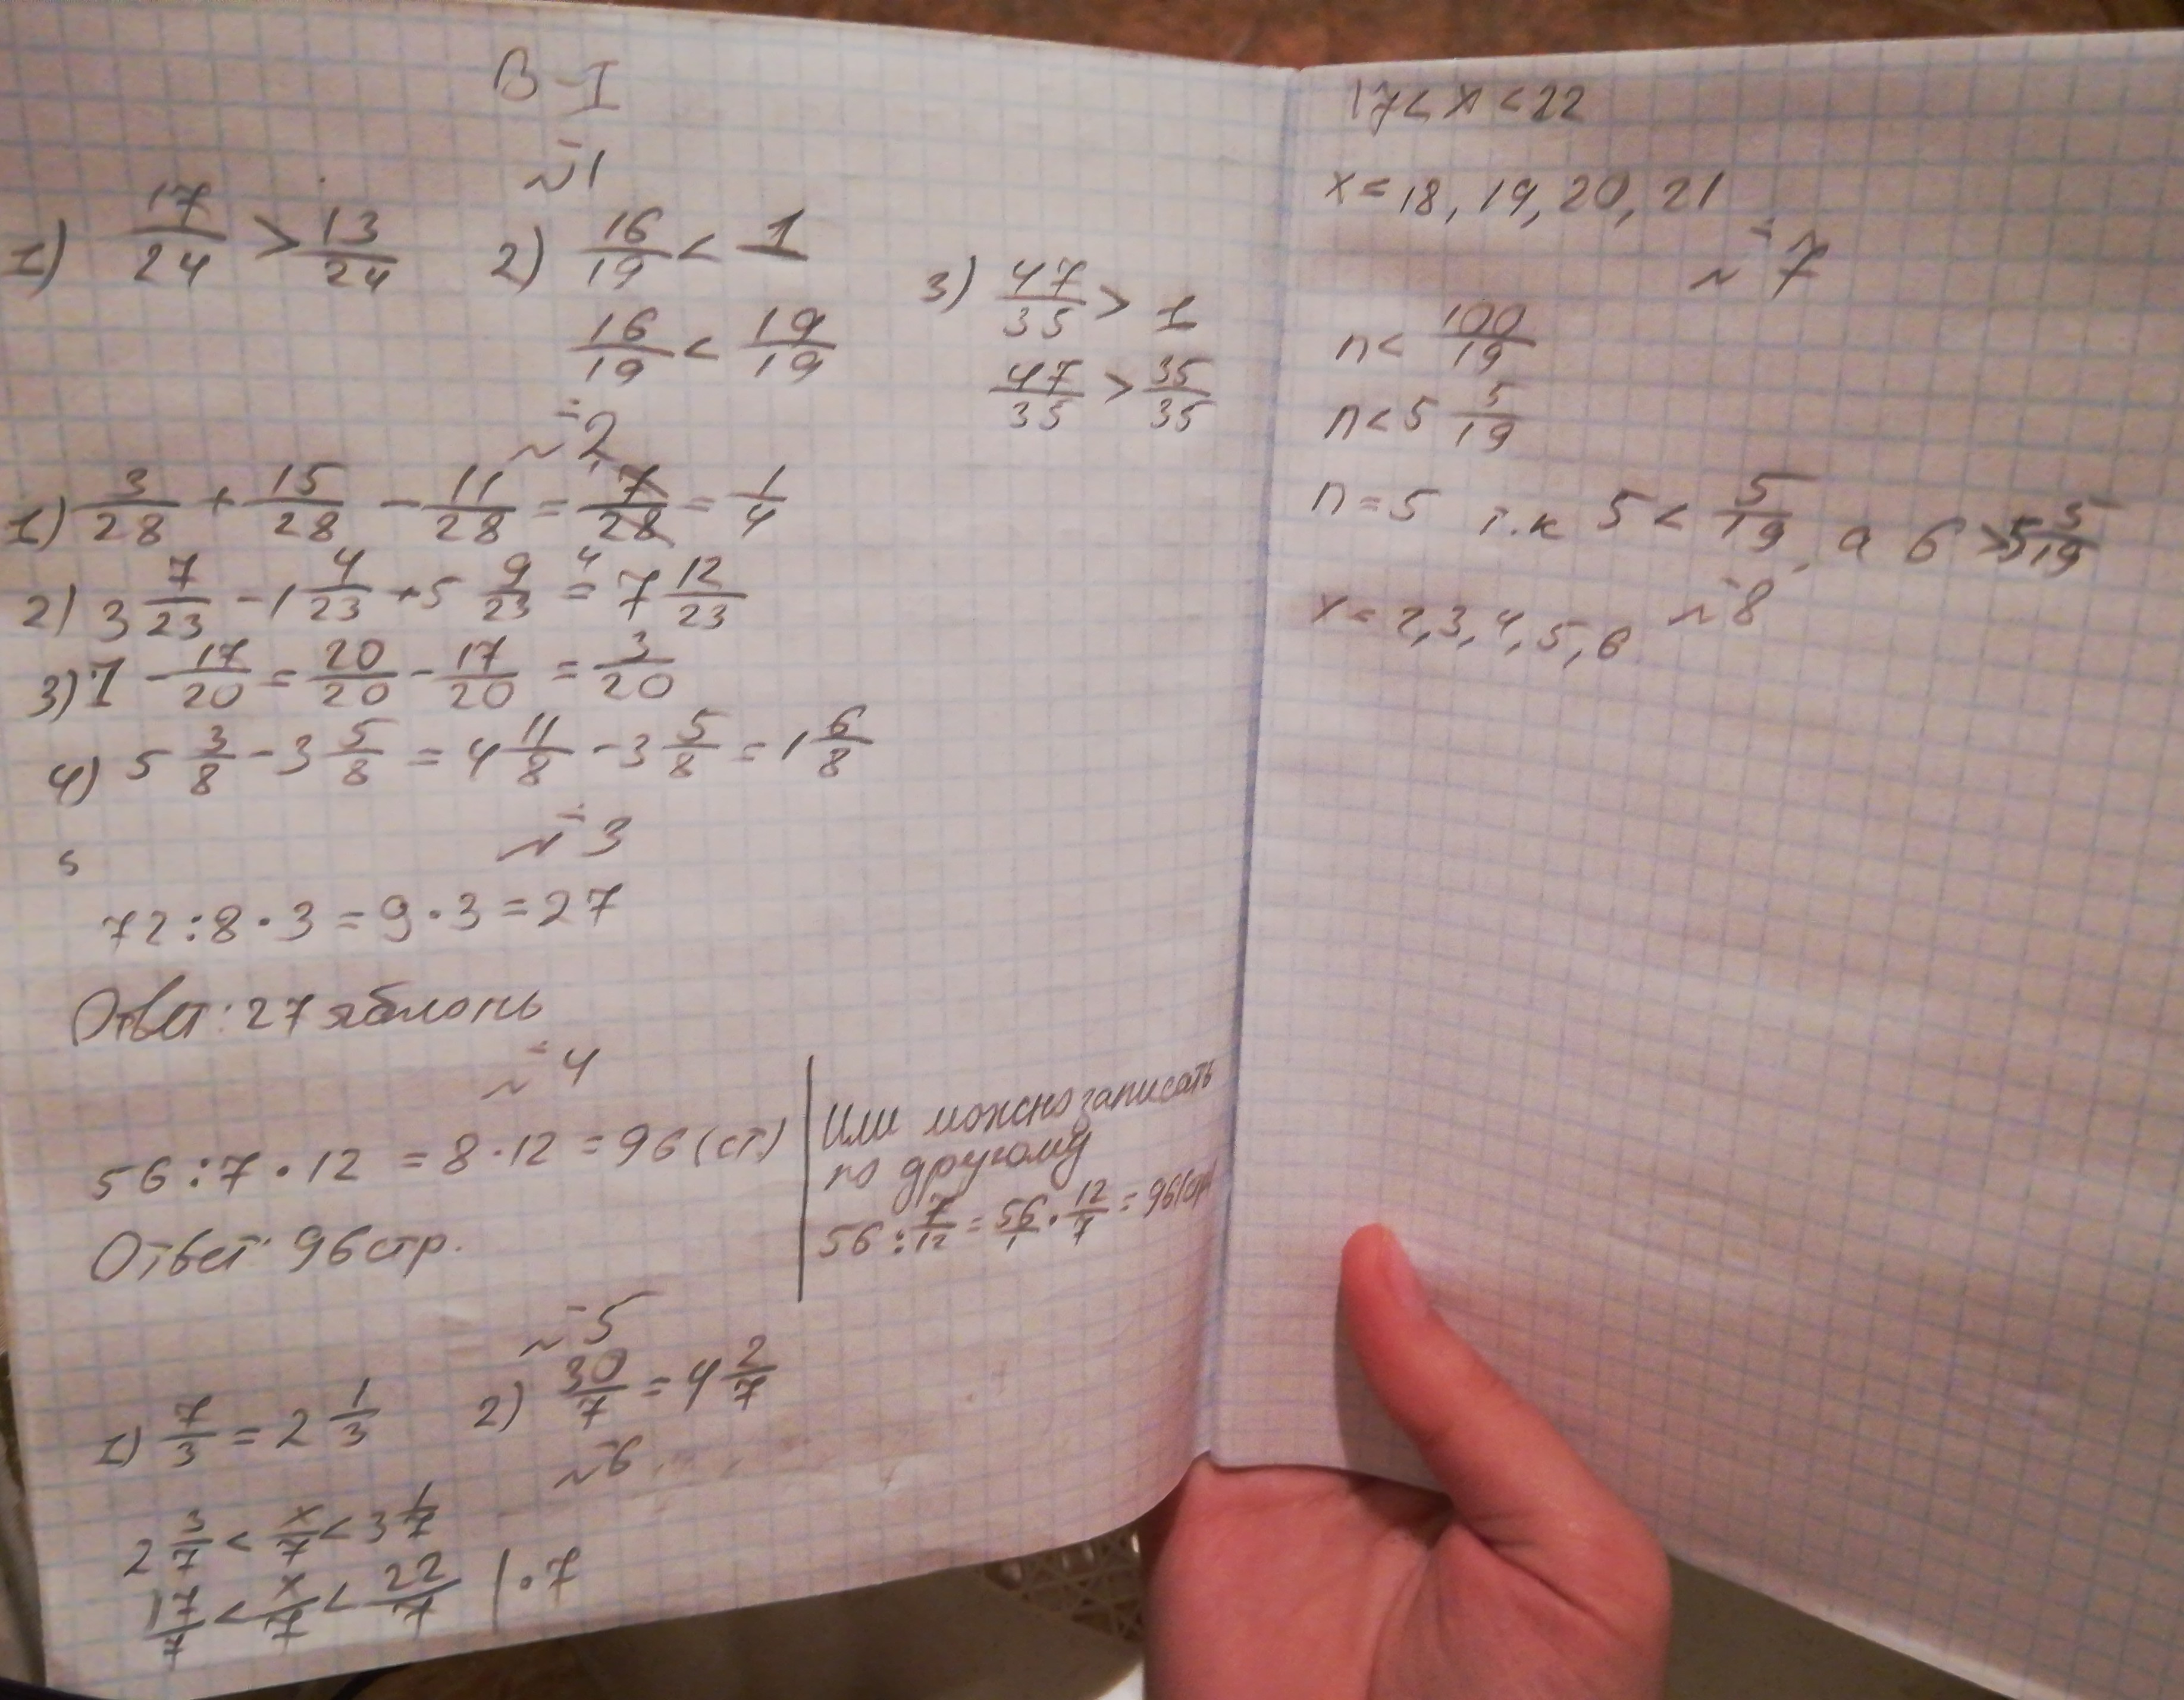 В-I
№1
1) 17/24 > 13/24 2) 16/19 < 1 3) 47/35 > 1
16/19 < 19/19 47/35 > 35/35
№2
1) 3/28 + 15/28 - 11/28 = 7/28 = 1/4
2) 3 7/23 - 1 4/23 + 5 9/23 = 7 12/23
3) 1 - 17/20 = 20/20 - 17/20 = 3/20
4) 5 3/8 - 3 5/8 = 4 11/8 - 3 5/8 = 1 6/8
№3
72 : 8 · 3 = 9 · 3 = 27
Ответ: 27 яблонь
№4
56 : 7 · 12 = 8 · 12 = 96 (ст)
Ответ: 96 стр.
Или можно записать
по другому
56 : 7/12 = 56/1 · 12/7 = 96 (стр)
№5
1) 7/3 = 2 1/3 2) 30/7 = 4 2/7
№6
2 3/7 < x/7 < 3 1/7
17/7 < x/7 < 22/7 | · 7
17 < x < 22
x = 18, 19, 20, 21
№7
n < 100/19
n < 5 5/19
n = 5 т.к 5 < 5/19, а 6 > 5 5/19
№8
x = 2, 3, 4, 5, 6